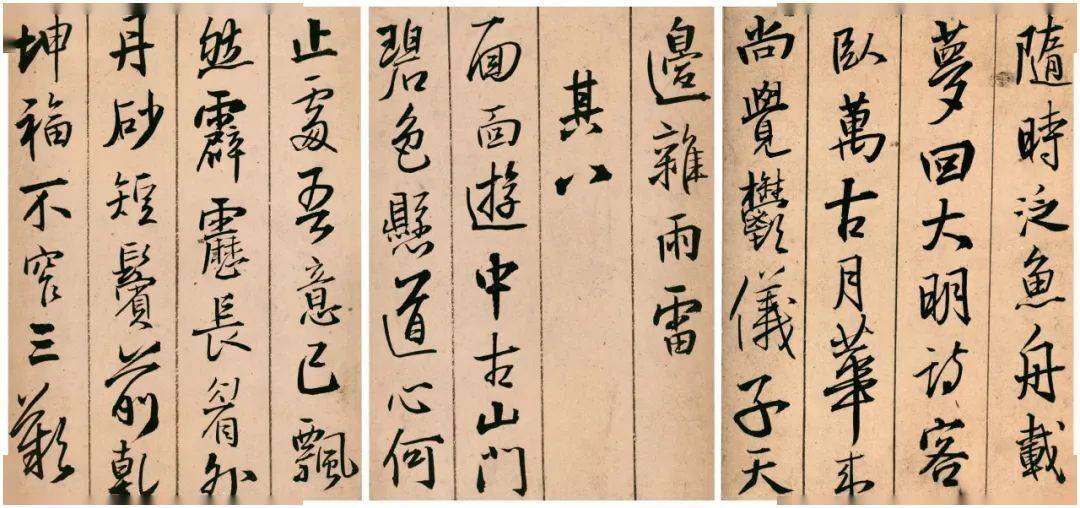 隨時泛魚舟載
夢回大明詩客
臥萬古月華来
尚覺欝儀子天
邊雜雨雷
其八
面面遊中古山門
碧色懸道心何
止處吾意已飄
然霹靂長眉外
丹砂短鬢前乾
坤福不窄三歎